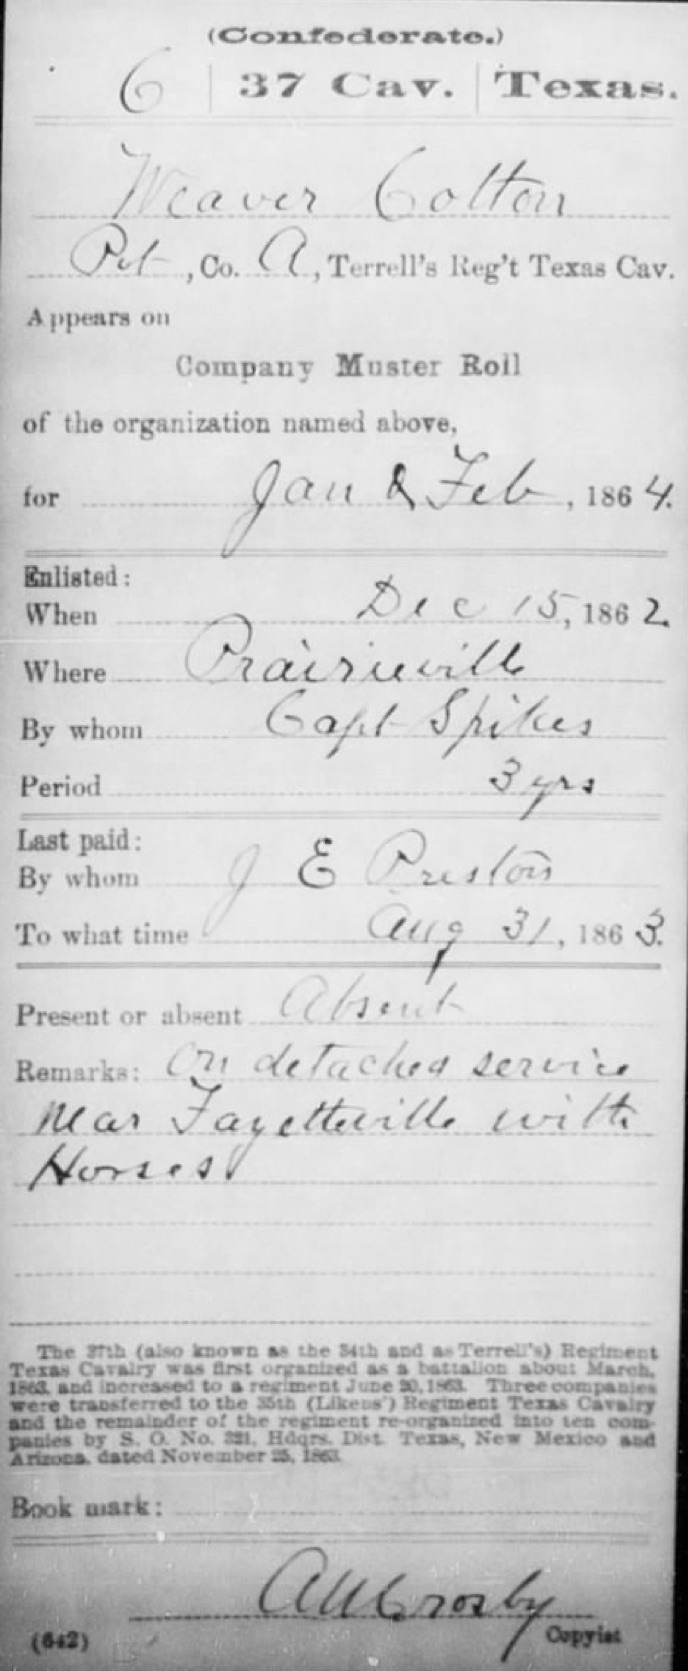 (Confederate.)
C | 37 Cav. | Texas.
Weaver Cotton
Pvt, Co. A, Terrell's Reg't Texas Cav.
Appears on
Company Muster Roll
of the organization named above,
for Jan & Feb, 1864.
Enlisted:
When Dec 15, 1862.
Where Prairieville
By whom Capt Spikes
Period 3 yrs
Last paid:
By whom J E Preston
To what time Aug 31, 1863.
Present or absent Absent
Remarks: On detached service
near Fayetteville with
Horses
The 37th (also known as the 34th and as Terrell's) Regiment
Texas Cavalry was first organized as a battalion about March,
1863, and increased to a regiment June 20, 1863. Three companies
were transferred to the 35th (Likens') Regiment Texas Cavalry
and the remainder of the regiment re-organized into ten com-
panies by S. O. No. 321, Hdqrs. Dist. Texas, New Mexico and
Arizona, dated November 25, 1863.
Book mark:
Crosby
(642) Copyist